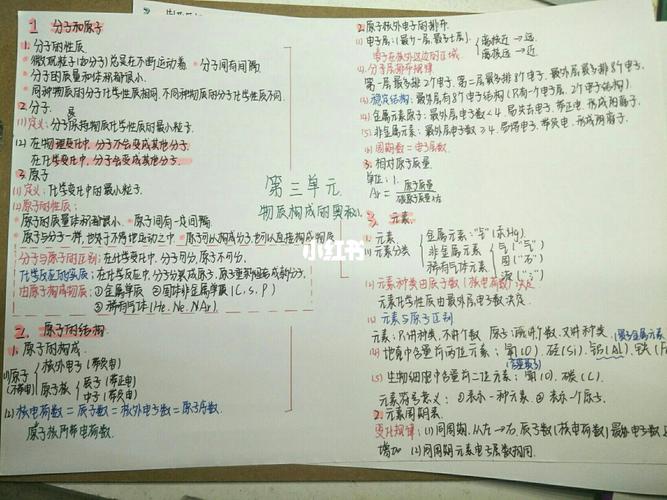 1 分子和原子
1. 分子的性质
·微观粒子(如分子)总是在不断运动着.·分子间有间隔.
·分子的质量和体积都很小.
·同种物质的分子化学性质相同,不同种物质的分子化学性质不同.
2. 分子.
(1)定义:分子保持物质化学性质的最小粒子.
(2)在物理变化中,分子不会变成其他分子.
在化学变化中,分子会变成其他分子.
3. 原子
(1)定义:化学变化中的最小粒子.
(2)原子的性质:
·原子的质量体积都很小.·原子间有一定间隔
·原子与分子一样,也处于不停地运动之中.·原子可以构成分子,也可以直接构成物质
分子与原子的区别:在化学变化中,分子可分,原子不可分.
化学反应的实质:在化学反应中,分子分裂成原子,原子重新组合成新分子.
由原子构成物质:①金属单质 ②固体非金属单质(C,S,P)
③稀有气体(He,Ne,Ar)
2. 原子的结构.
1. 原子的构成.
(1)原子
(不带电)
核外电子(带负电)
原子核
质子(带正电)
中子(不带电)
(2)核电荷数=质子数=核外电子数=原子序数
原子核所带电荷数.
第三单元
物质构成的奥秘
小红书
2. 原子核外电子的排布.
(1)电子层:(最少一层,最多七层)
离核近→
离核远→
电子在核外运动的区域.
(2)分子层排布规律
第一层最多排2个电子,第二层最多排8个电子,最外层最多排8个电子.
(3)稳定结构:最外层有8个电子结构(只有一个电子层,2个电子结构).
(4)金属元素原子:最外层电子数<4.易失去电子,带正电,形成阳离子.
(5)非金属元素:最外层电子数≥4.易得电子,带负电,形成阴离子.
(6)周期数=电子层数.
3. 相对原子质量.
单位:1.
Ar=原子质量
3. 元素
1. 元素
(1)元素分类
金属元素:"钅"(除Hg).
非金属元素
稀有气体元素
气("气")
固("石")
液("氵")
(2)元素种类由质子数(核电荷数)决定
元素化学性质由最外层电子数决定.
(3)元素与原子区别
元素:只讲种类,不讲个数 原子:既讲个数,又讲种类.
(4)地壳中含量前四位元素:氧(O).硅(Si).铝(Al).铁(F
(5)生物细胞中含量前二位元素:氧(O).碳(C).
元素符号意义:①表示一种元素.②表示一个原子.
2. 元素周期表.
变化规律:(1)同周期,从左→右原子数(核电荷数)最外电子数
增加 (2)同周期元素电子层数相同.